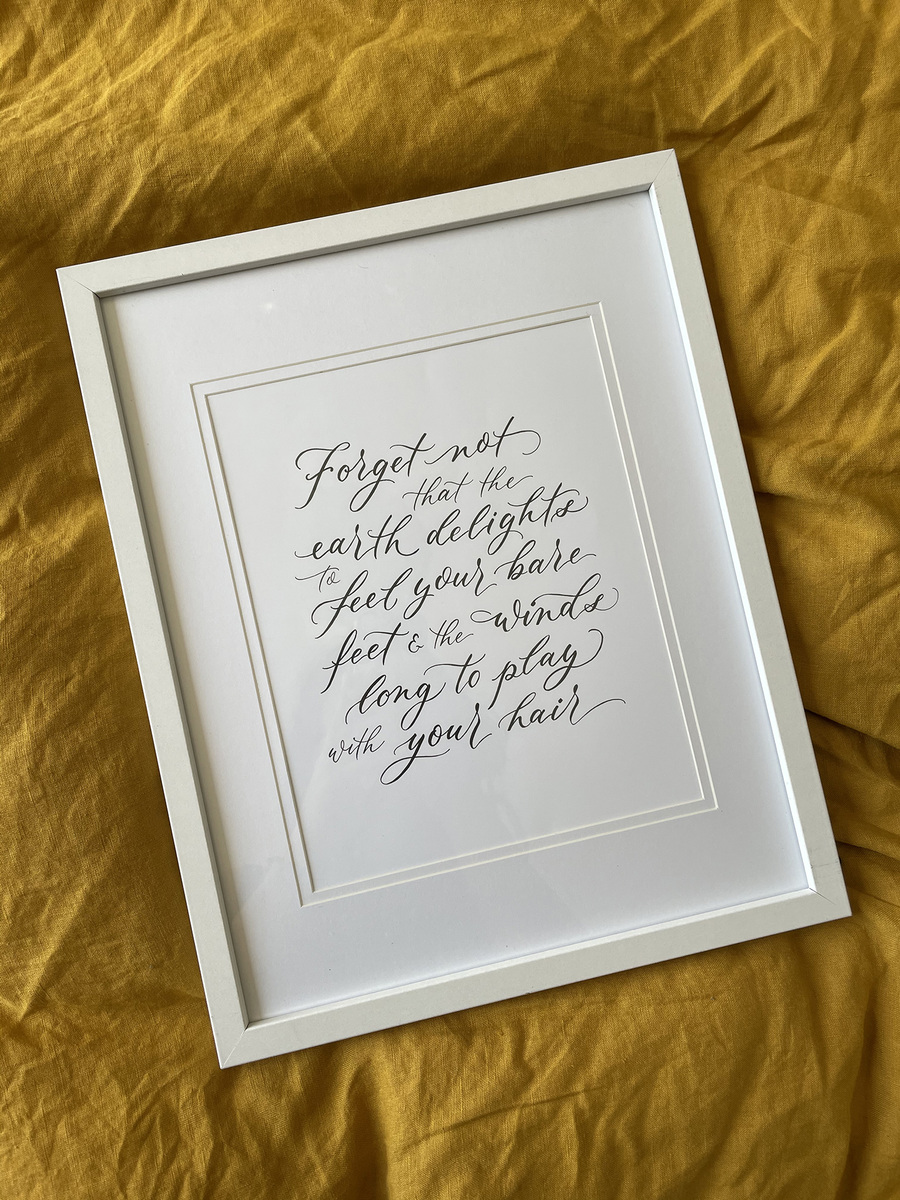 Forget not
that the
earth delights
to
feel your bare
feet & the winds
long to play
with your hair